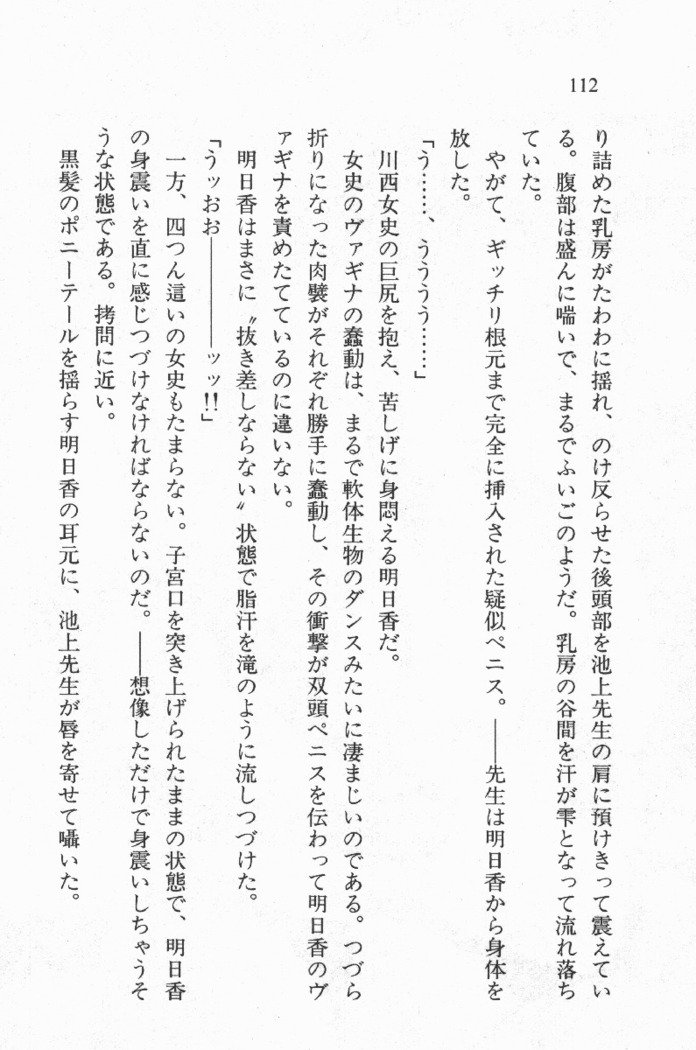 112
り詰めた乳房がたわわに揺れ、のけ反らせた後頭部を池上先生の肩に預けきって震えてい
る。腹部は盛んに喘いで、まるでふいごのようだ。乳房の谷間を汗が雫となって流れ落ち
ていた。
やがて、ギッチリ根元まで完全に挿入された疑似ペニス。――先生は明日香から身体を
放した。
「う……、ううう……」
川西女史の巨尻を抱え、苦しげに身悶える明日香だ。
女史のヴァギナの蠢動は、まるで軟体生物のダンスみたいに凄まじいのである。つづら
折りになった肉襞がそれぞれ勝手に蠢動し、その衝撃が双頭ペニスを伝わって明日香のヴ
ァギナを責めたてているのに違いない。
明日香はまさに〝抜き差しならない〟状態で脂汗を滝のように流しつづけた。
「うッおお――――ッッ!!」
一方、四つん這いの女史もたまらない。子宮口を突き上げられたままの状態で、明日香
の身震いを直に感じつづけなければならないのだ。――想像しただけで身震いしちゃうそ
うな状態である。拷問に近い。
黒髪のポニーテールを揺らす明日香の耳元に、池上先生が唇を寄せて囁いた。